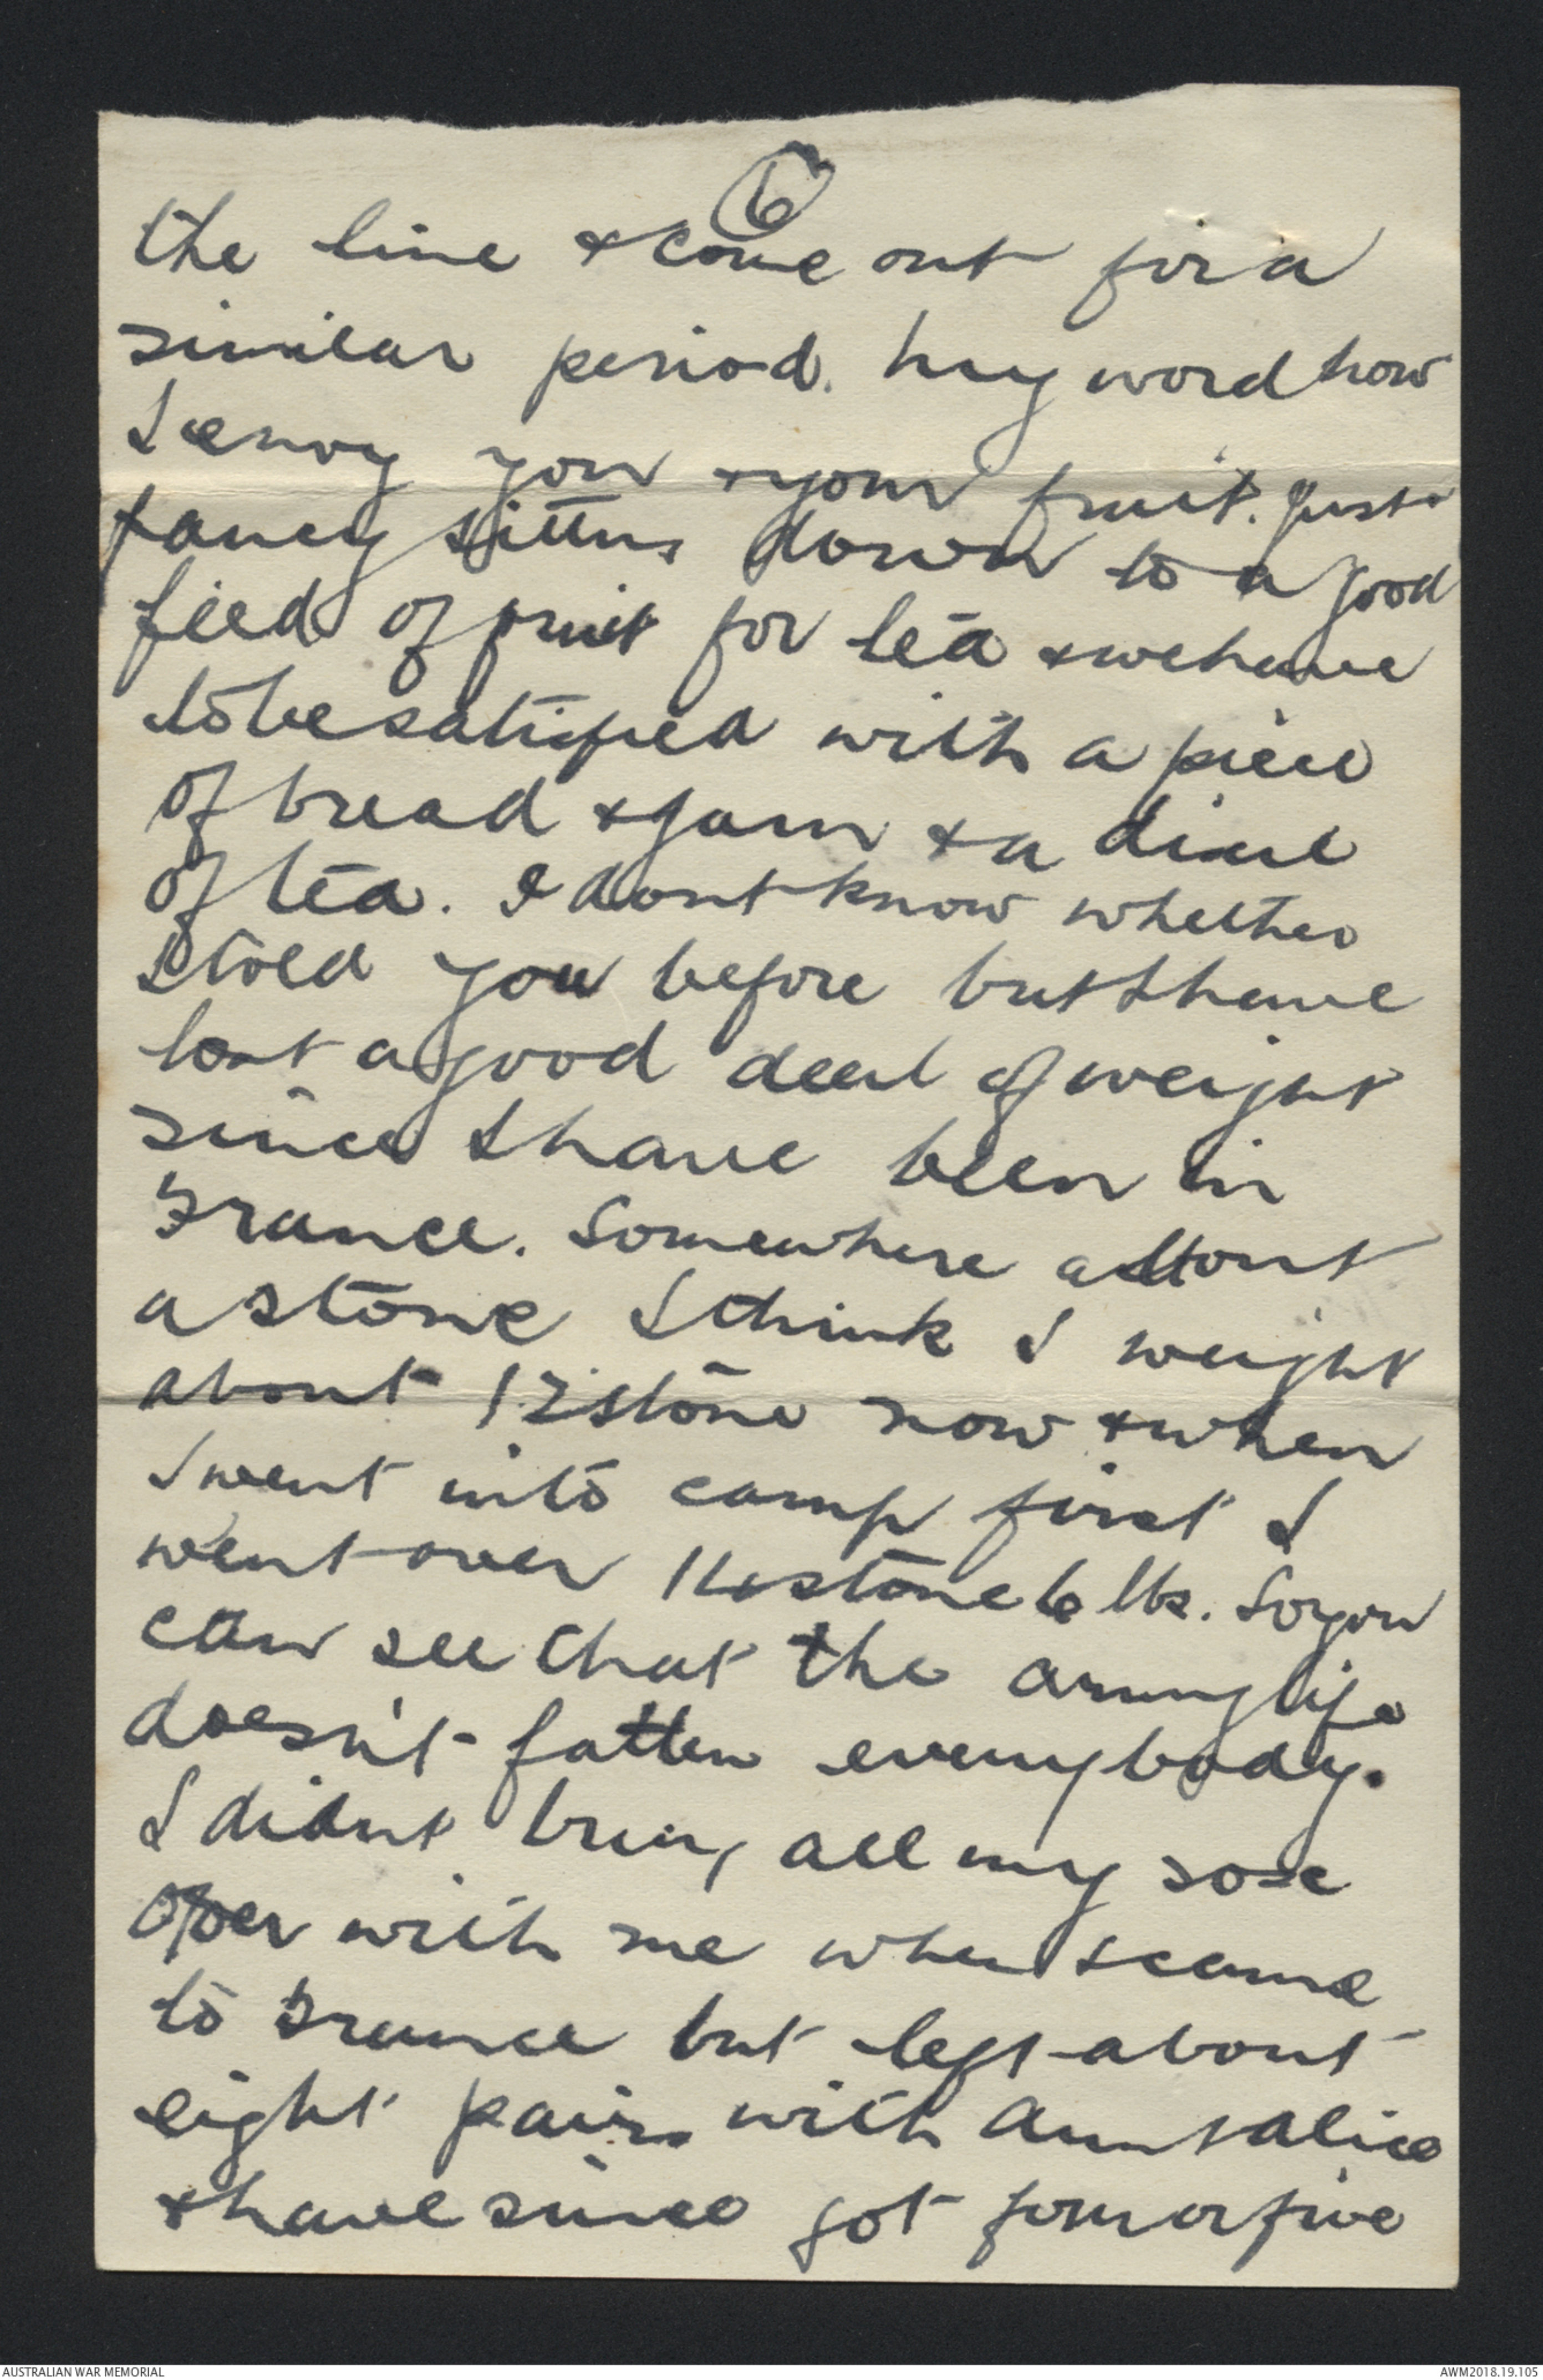 6
the line & come out for a
similar period. My word how
I envy you & your fruit. Just
fancy sitting down to a good
feed of fruit for tea & we have
to be satisfied with a piece
of bread & jam & a dixie
of tea. I dont know whether
I told you before but I have
lost a good deal of weight
since I have been in
France. Somewhere about
a stone I think I weight
about 12 stone now & when
I went into camp first I
went over stone 6 lbs. So you
can see that the army life
doesn't fatten everybody.
I didnt bring all my sox
over with me when I came
to France but left about
eight pairs with Aunt Alice
& have since got four or five
AUSTRALIAN WAR MEMORIAL
AWM2018.19.105